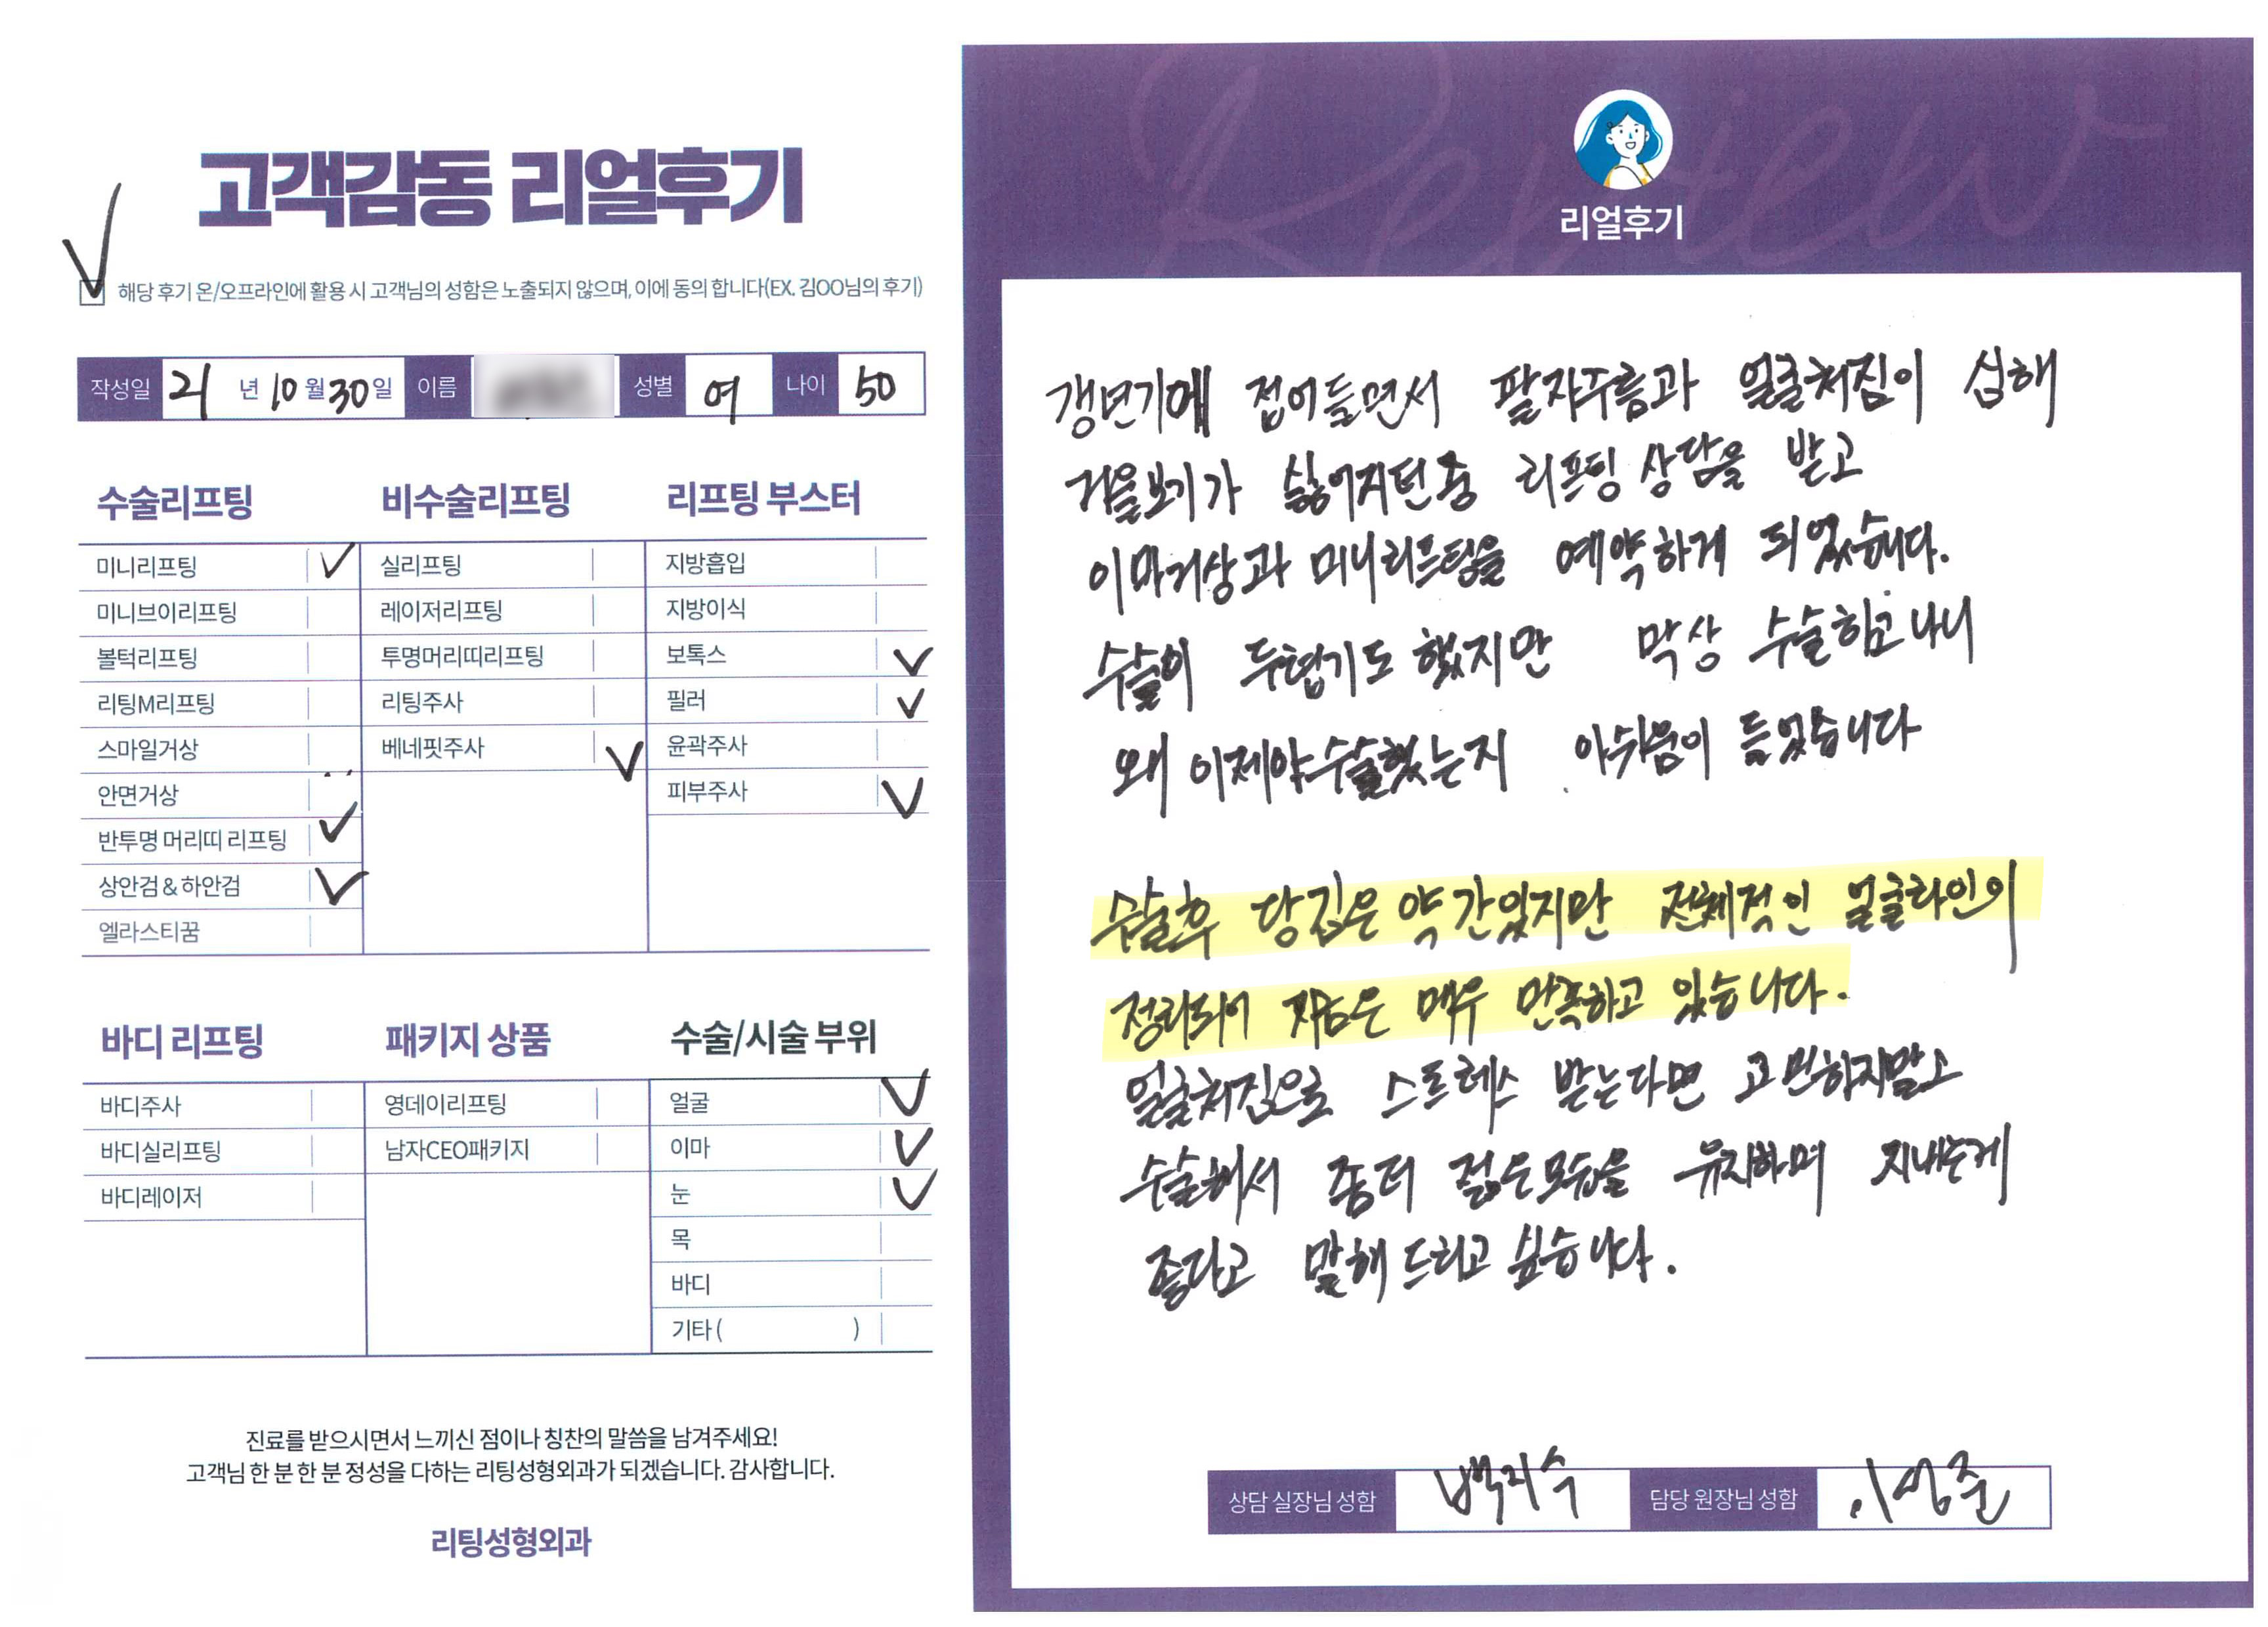 고객감동 리얼후기
해당 후기 온/오프라인에 활용 시 고객님의 성함은 노출되지 않으며, 이에 동의 합니다(EX. 김OO님의 후기)
작성일 21 년 10 월 30 일 이름 성별 여 나이 50
수술리프팅
미니리프팅
미니브이리프팅
볼턱리프팅
리팅M리프팅
스마일거상
안면거상
반투명 머리띠 리프팅
상안검 & 하안검
엘라스티꿈
비수술리프팅
실리프팅
레이저리프팅
투명머리띠리프팅
리팅주사
베네핏주사
리프팅 부스터
지방흡입
지방이식
보톡스
필러
윤곽주사
피부주사
바디 리프팅
바디주사
바디실리프팅
바디레이저
패키지 상품
영데이리프팅
남자CEO패키지
수술/시술 부위
얼굴
이마
눈
목
바디
기타 ( )
진료를 받으시면서 느끼신 점이나 칭찬의 말씀을 남겨주세요!
고객님 한 분 한 분 정성을 다하는 리팅성형외과가 되겠습니다. 감사합니다.
리팅성형외과
Review
리얼후기
갱년기에 접어들면서 팔자주름과 얼굴처짐이 심해
거울보기가 싫어지던중 리프팅 상담을 받고
이마거상과 미니리프팅을 예약하게 되었습니다.
수술이 두렵기도 했지만 막상 수술하고나니
왜 이제야 수술했는지 아쉬움이 들었습니다
수술후 당김은 약간있지만 전체적인 얼굴라인이
정리되어 지금은 매우 만족하고 있습니다.
얼굴처짐으로 스트레스 받는다면 고민하지말고
수술해서 좀더 젊은모습을 유지하며 지내는게
좋다고 말해 드리고 싶습니다.
상담 실장님 성함 백지수 담당 원장님 성함